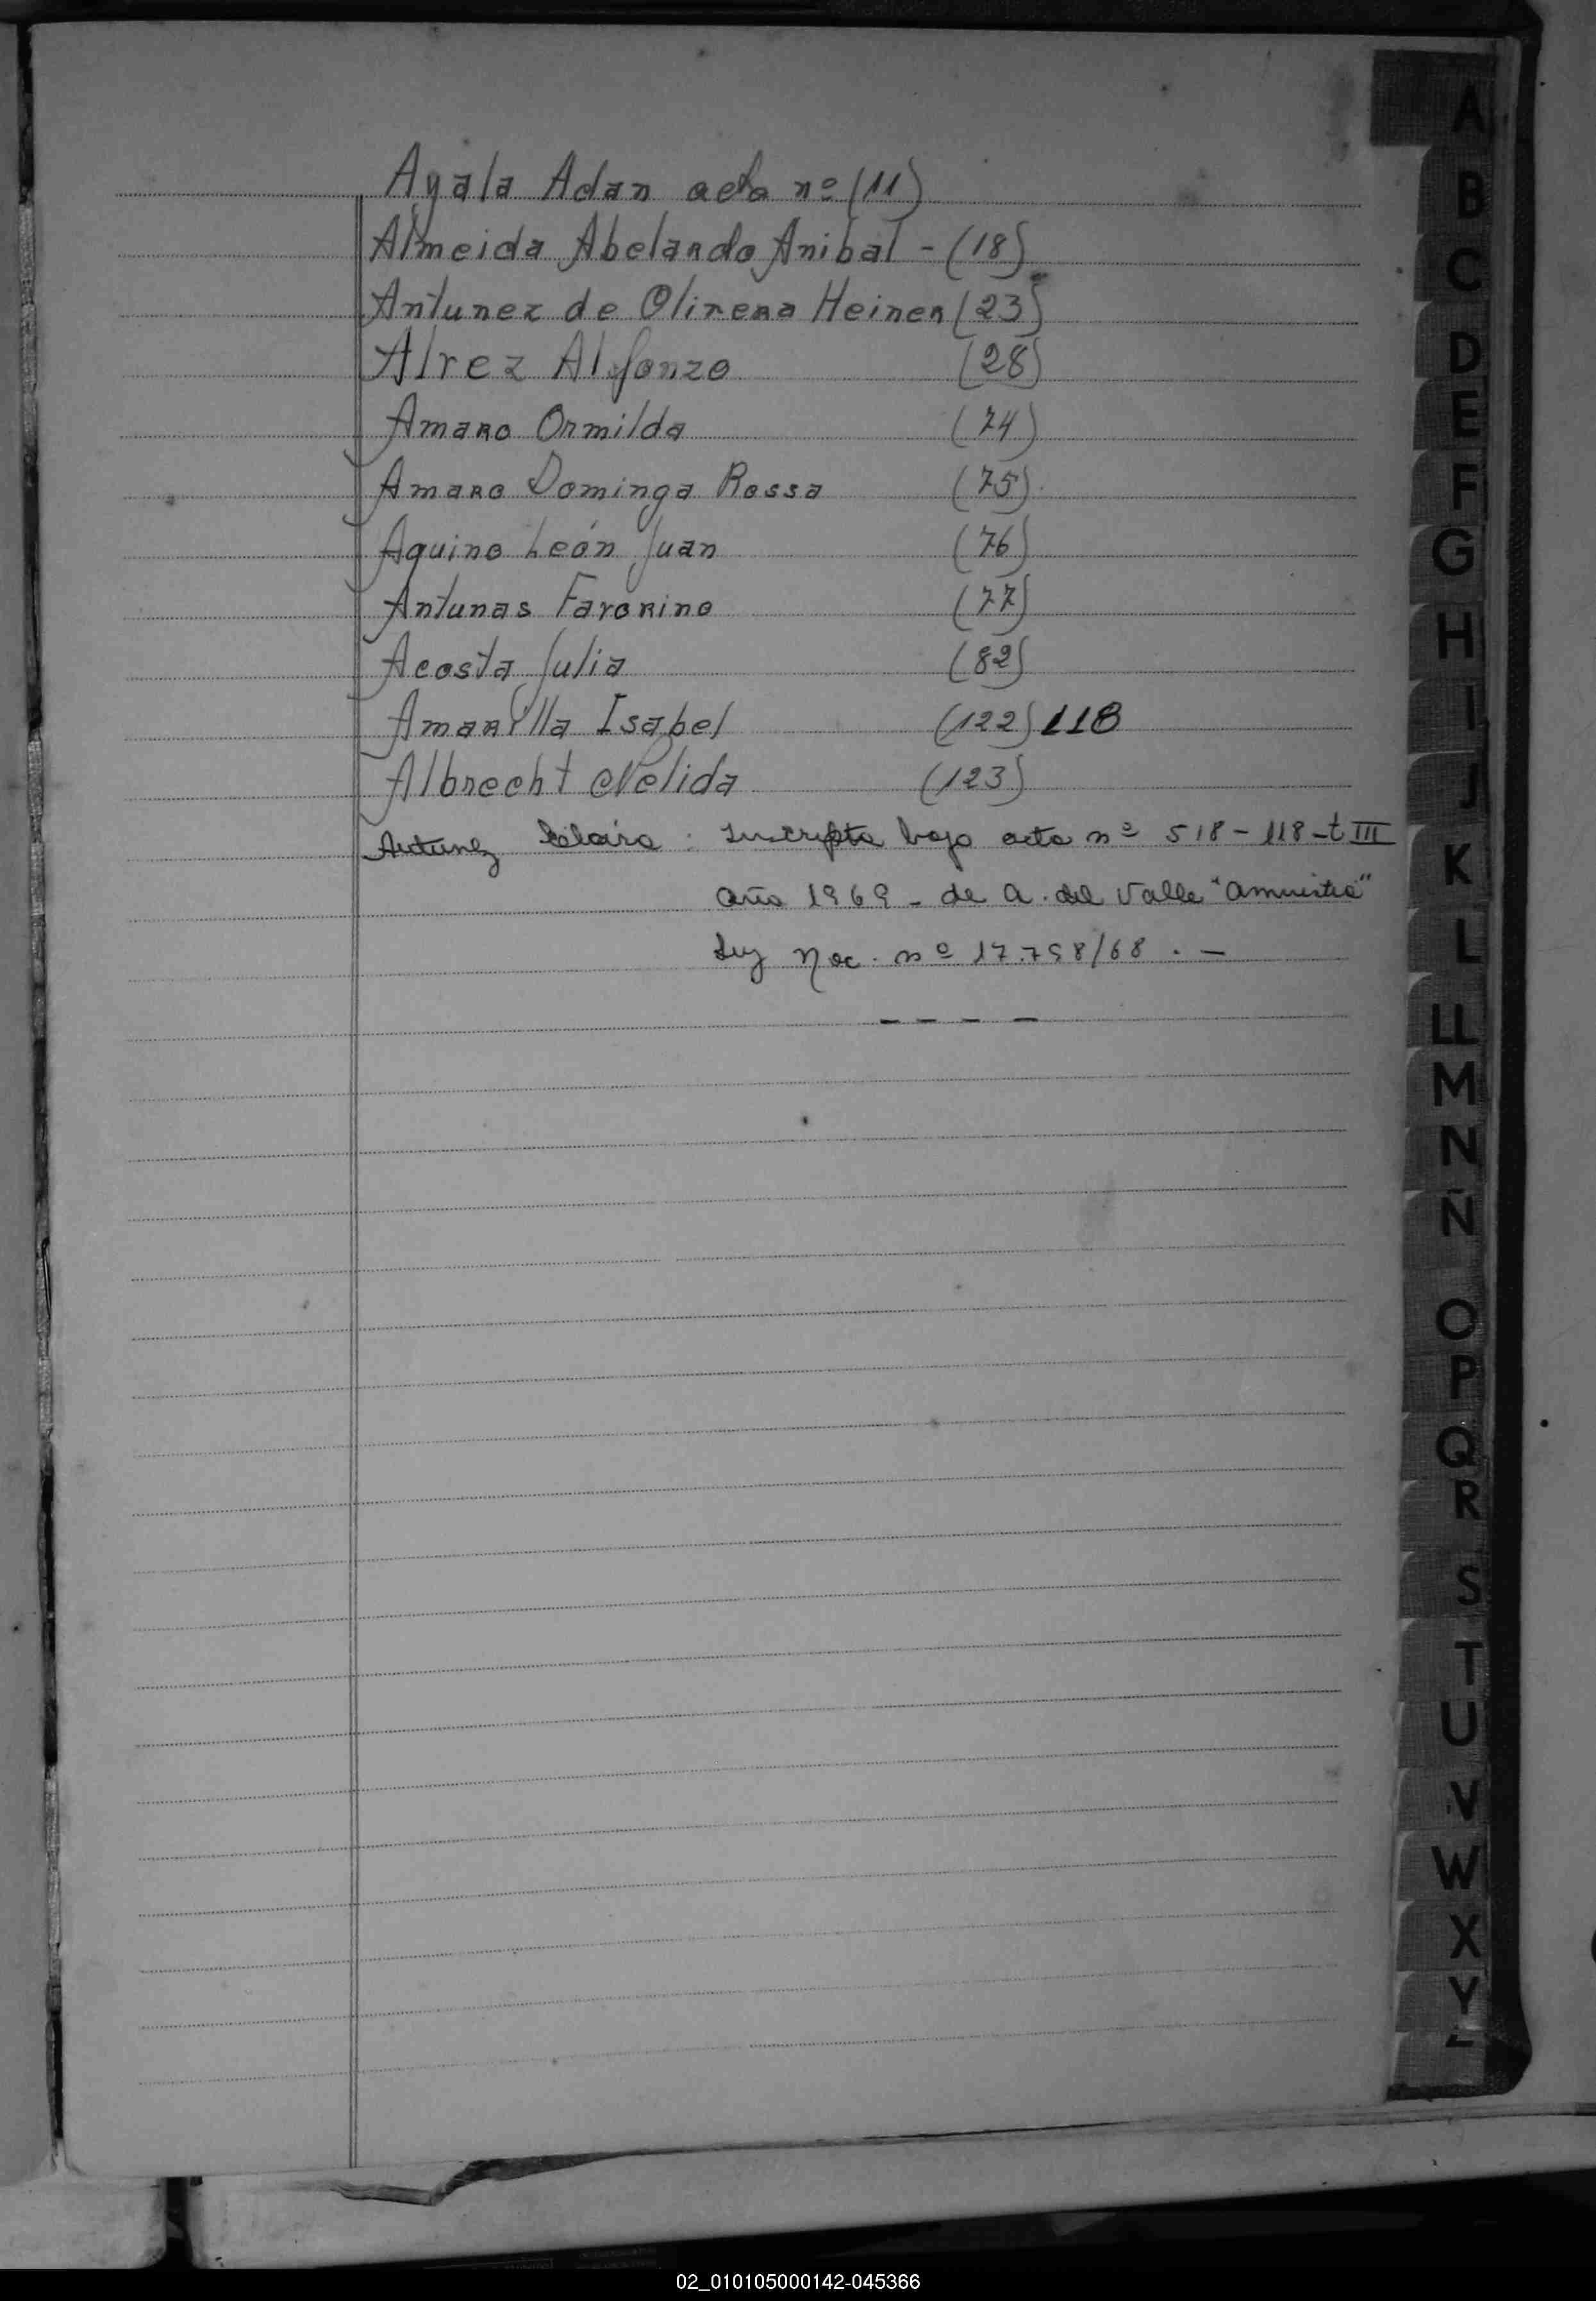 Ayala Adan acta nº (11)
Almeida Abelardo Anibal - (18)
Antunez de Olivera Heiner (23)
Alvez Alfonzo (28)
Amaro Ormilda (74)
Amaro Dominga Rossa (75)
Aquino León Juan (76)
Antunas Favorino (77)
Acosta Julia (82)
Amarilla Isabel (122) 118
Albrecht Nelida (123)
Antunez : Inscripta bajo acta nº 518-118-t III
año 1969 - de A. del Valle "amnistia"
Ley Nac. nº 17.798/68 . -
- - - -
A
B
C
D
E
F
G
H
I
J
K
L
LL
M
N
Ñ
O
P
Q
R
S
T
U
V
W
X
Y
02_010105000142-045366